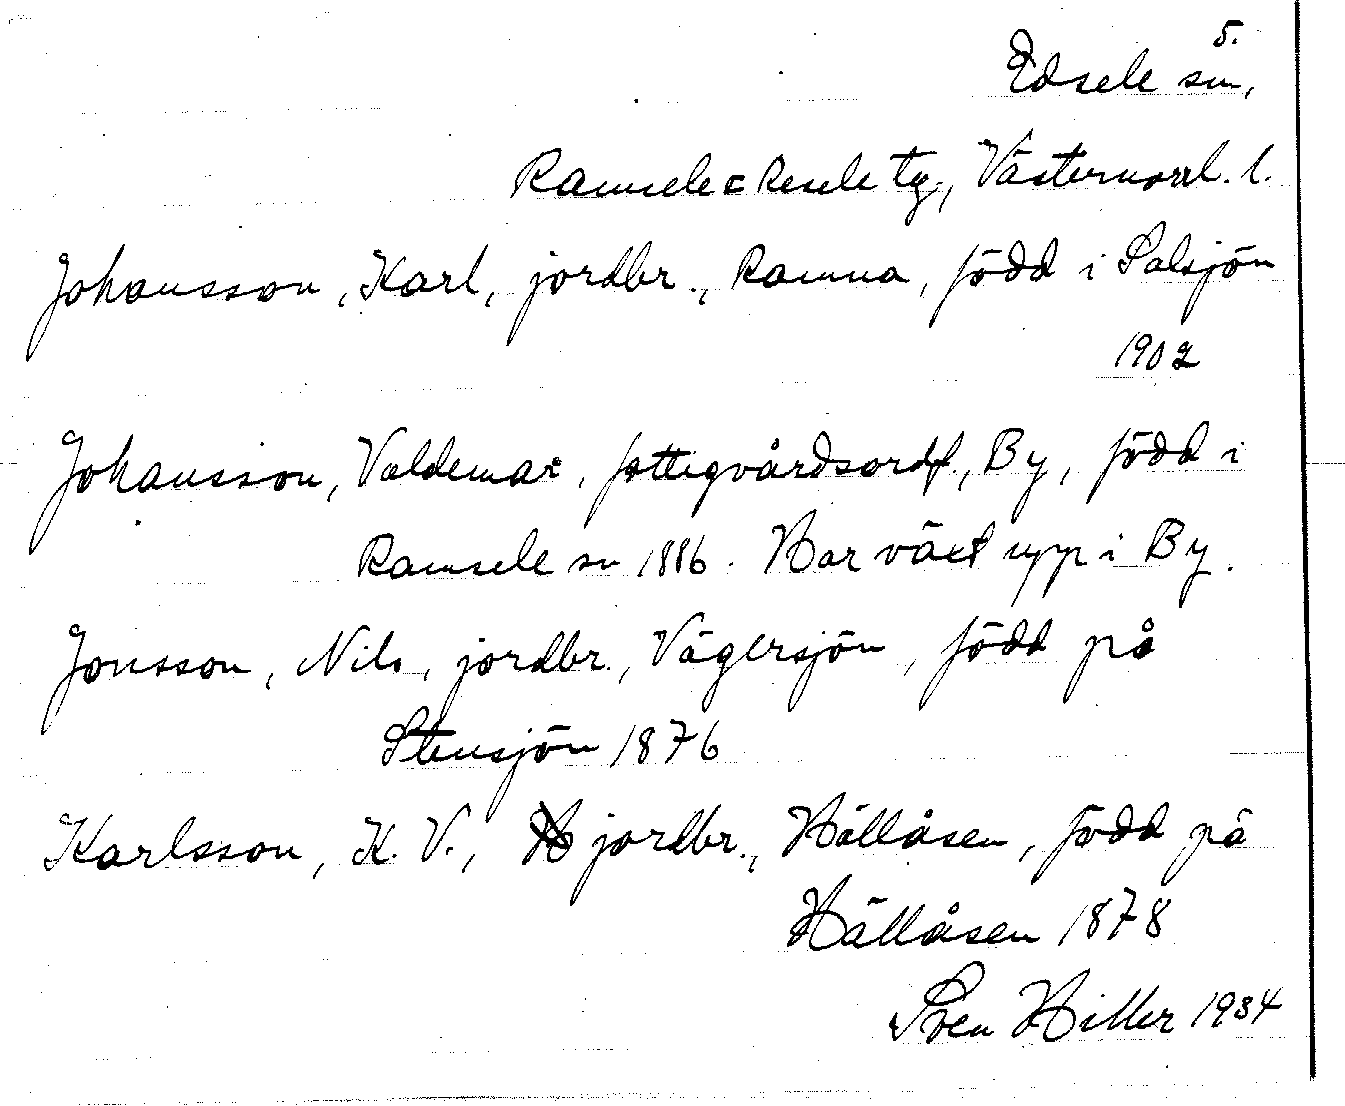 5.
Edsele sn,
Ramsele = Resele tg, Västernorrl. l.
Johansson, Karl, jordbr., Ramna, född i Salsjön
1902
Johansson, Valdemar, fattigvårdsordf., By, född i
Ramsele sn 1886. Har växt upp i By.
Jonsson, Nils, jordbr., Vägersjön, född på
Stensjön 1876
Karlsson, K. V., jordbr., Hällåsen, född på
Hällåsen 1878
Sven Hiller 1934